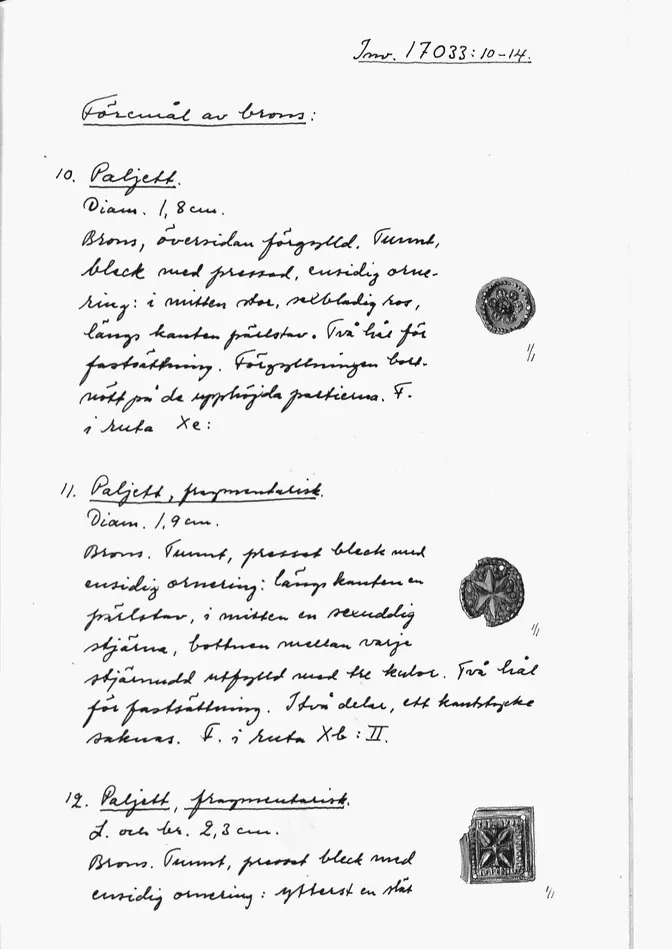 Inv. 17033:10-14.
Föremål av brons:
10. Paljett.
Diam. 1,8 cm.
Brons, översidan förgylld. Tunnt,
bleck med pressad, ensidig orne-
ring: i mitten stor, sexbladig ros,
längs kanten pärlstav. Två hål för
fastsättning. Förgyllningen bort-
nött på de upphöjda partierna. F.
i ruta Xe:
1/1
11. Paljett, fragmentarisk.
Diam. 1,9 cm.
Brons. Tunnt, pressat bleck med
ensidig ornering: längs kanten en
pärlstav, i mitten en sexuddig
stjärna, bottnen mellan varje
stjärnudd utfylld med tre kulor. Två hål
för fastsättning. I två delar, ett kantstycke
saknas. F. i ruta Xb: II.
1/1
12. Paljett, fragmentarisk.
L. och br. 2,3 cm.
Brons. Tunnt, pressat bleck med
ensidig ornering: ytterst en slät
1/1